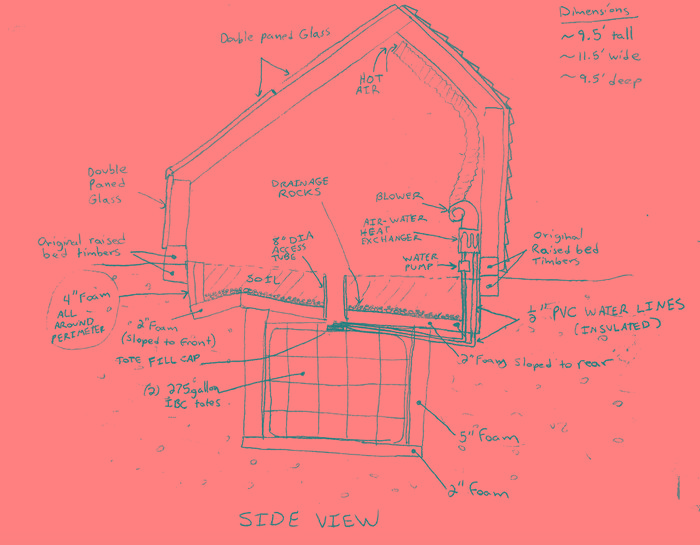 Dimensions
~ 9.5' tall
~ 11.5' wide
~ 9.5' deep
Double paned Glass
HOT
AIR
Double
Paned
Glass
DRAINAGE
ROCKS
BLOWER
AIR-WATER
HEAT
EXCHANGER
WATER
PUMP
8" DIA
ACCESS
TUBE
Original raised
bed timbers
Original
Raised bed
Timbers
SOIL
4" Foam
ALL
AROUND
PERIMETER
2" Foam
(sloped to front)
1/2" PVC WATER LINES
(INSULATED)
TOTE FILL CAP
2" Foam sloped to rear
(2) 275 gallon
IBC totes
5" Foam
2" Foam
SIDE VIEW